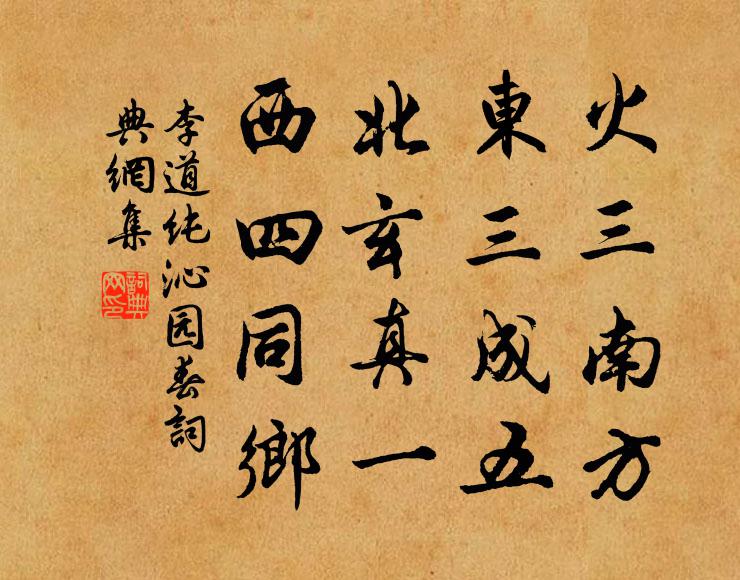 火三南方
東三成五
北玄真一
西四同鄉
李道纯沁园春詞
典網集
詞典网印